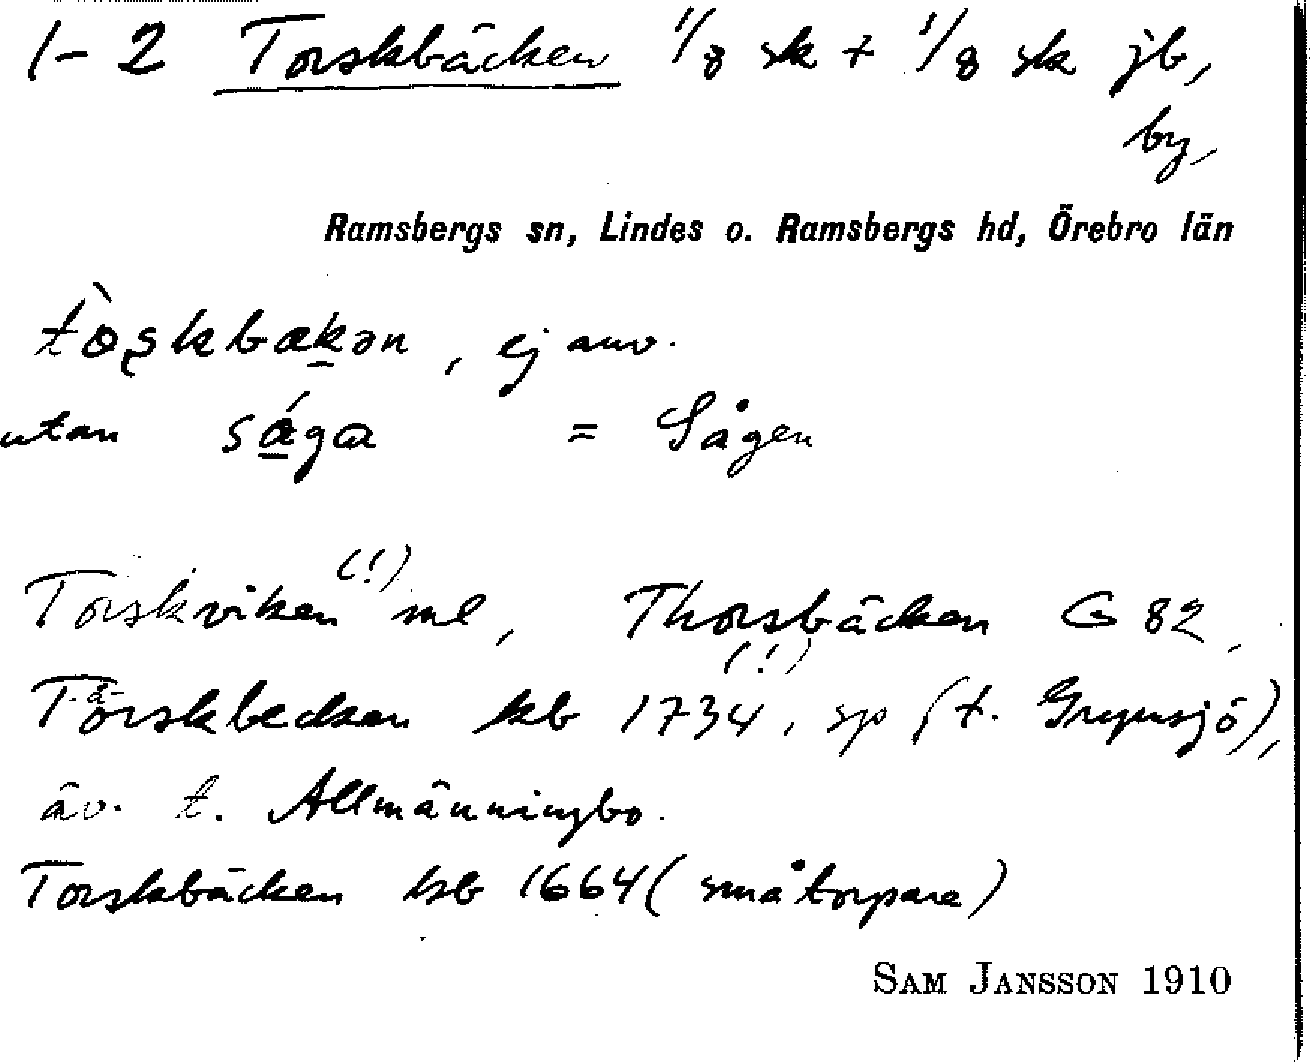 1-2 Torskbäcken 1/8 sk + 1/8 sk jb,
by,
Ramsbergs sn, Lindes o. Ramsbergs hd, Örebro län
tòʂkbæk̲ən, ej anv.
utan sá̲ga = Sågen
Torskviken (!) ml, Thorsbäcken G 82,
(!)
Törskbecken kb 1734, sp (t. Grymsjö),
äv. t. Allmänningbo.
Torskbäcken kb 1664 (småtorpare)
SAM JANSSON 1910